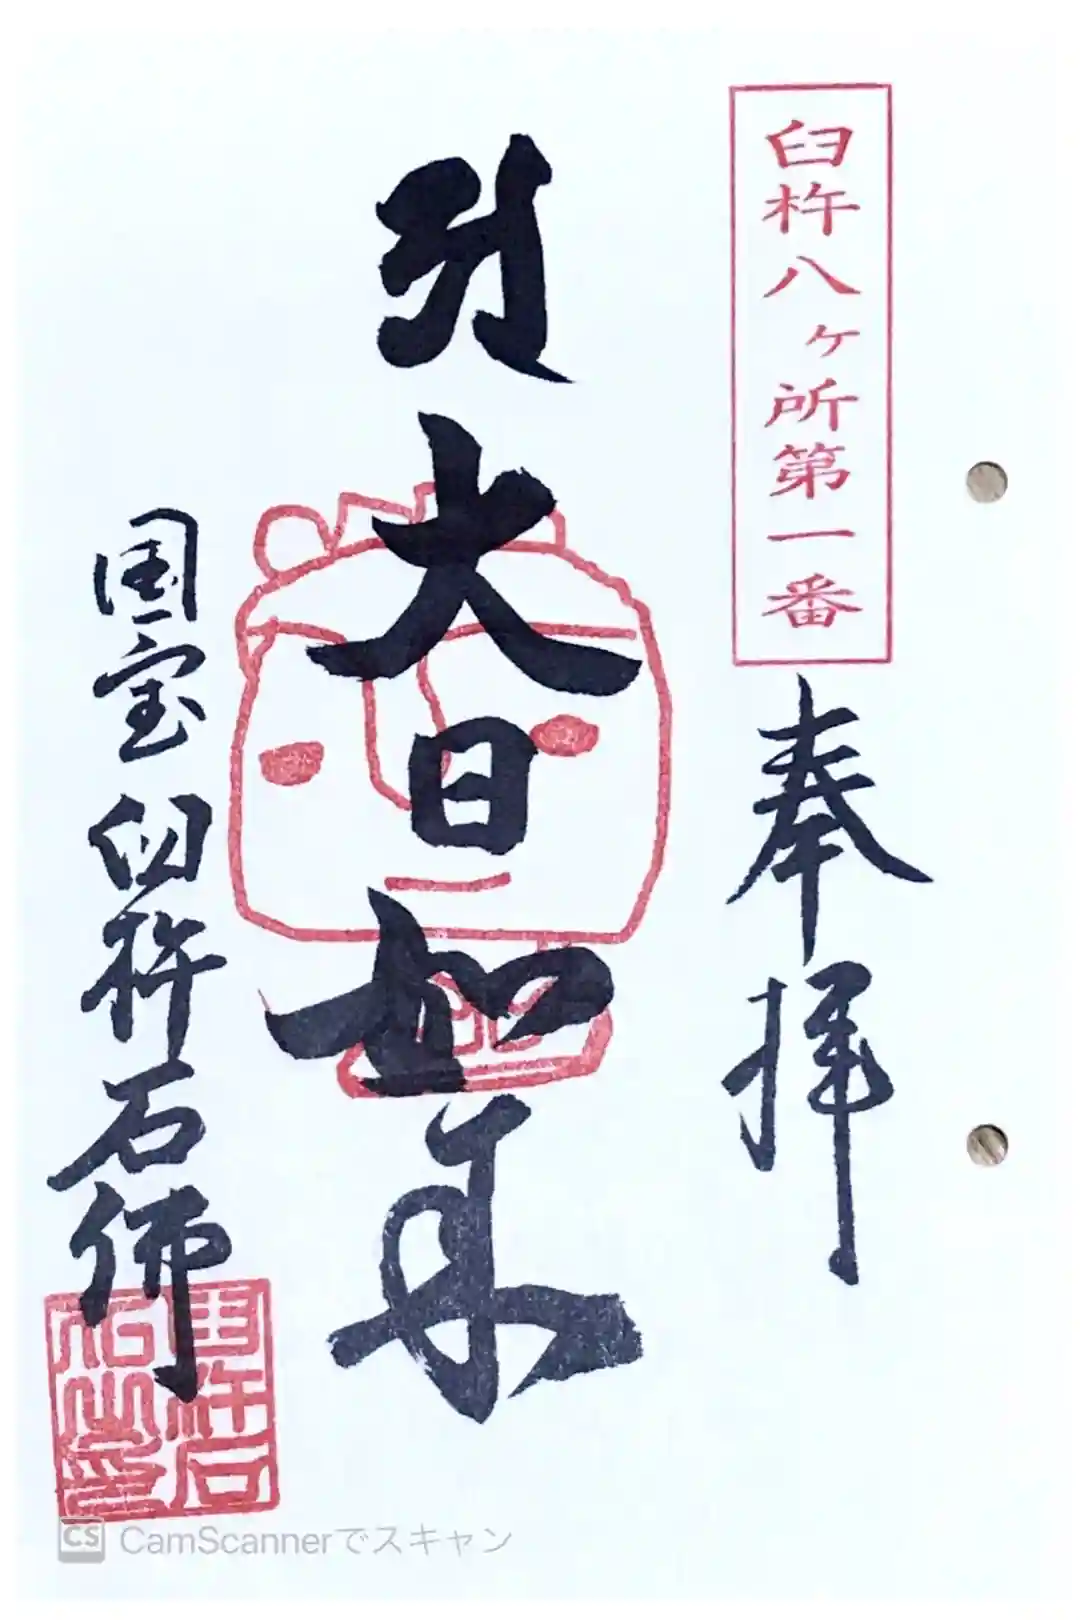 臼杵八ヶ所第一番
奉拝
大日如来
国宝臼杵石佛
CS CamScannerでスキャン